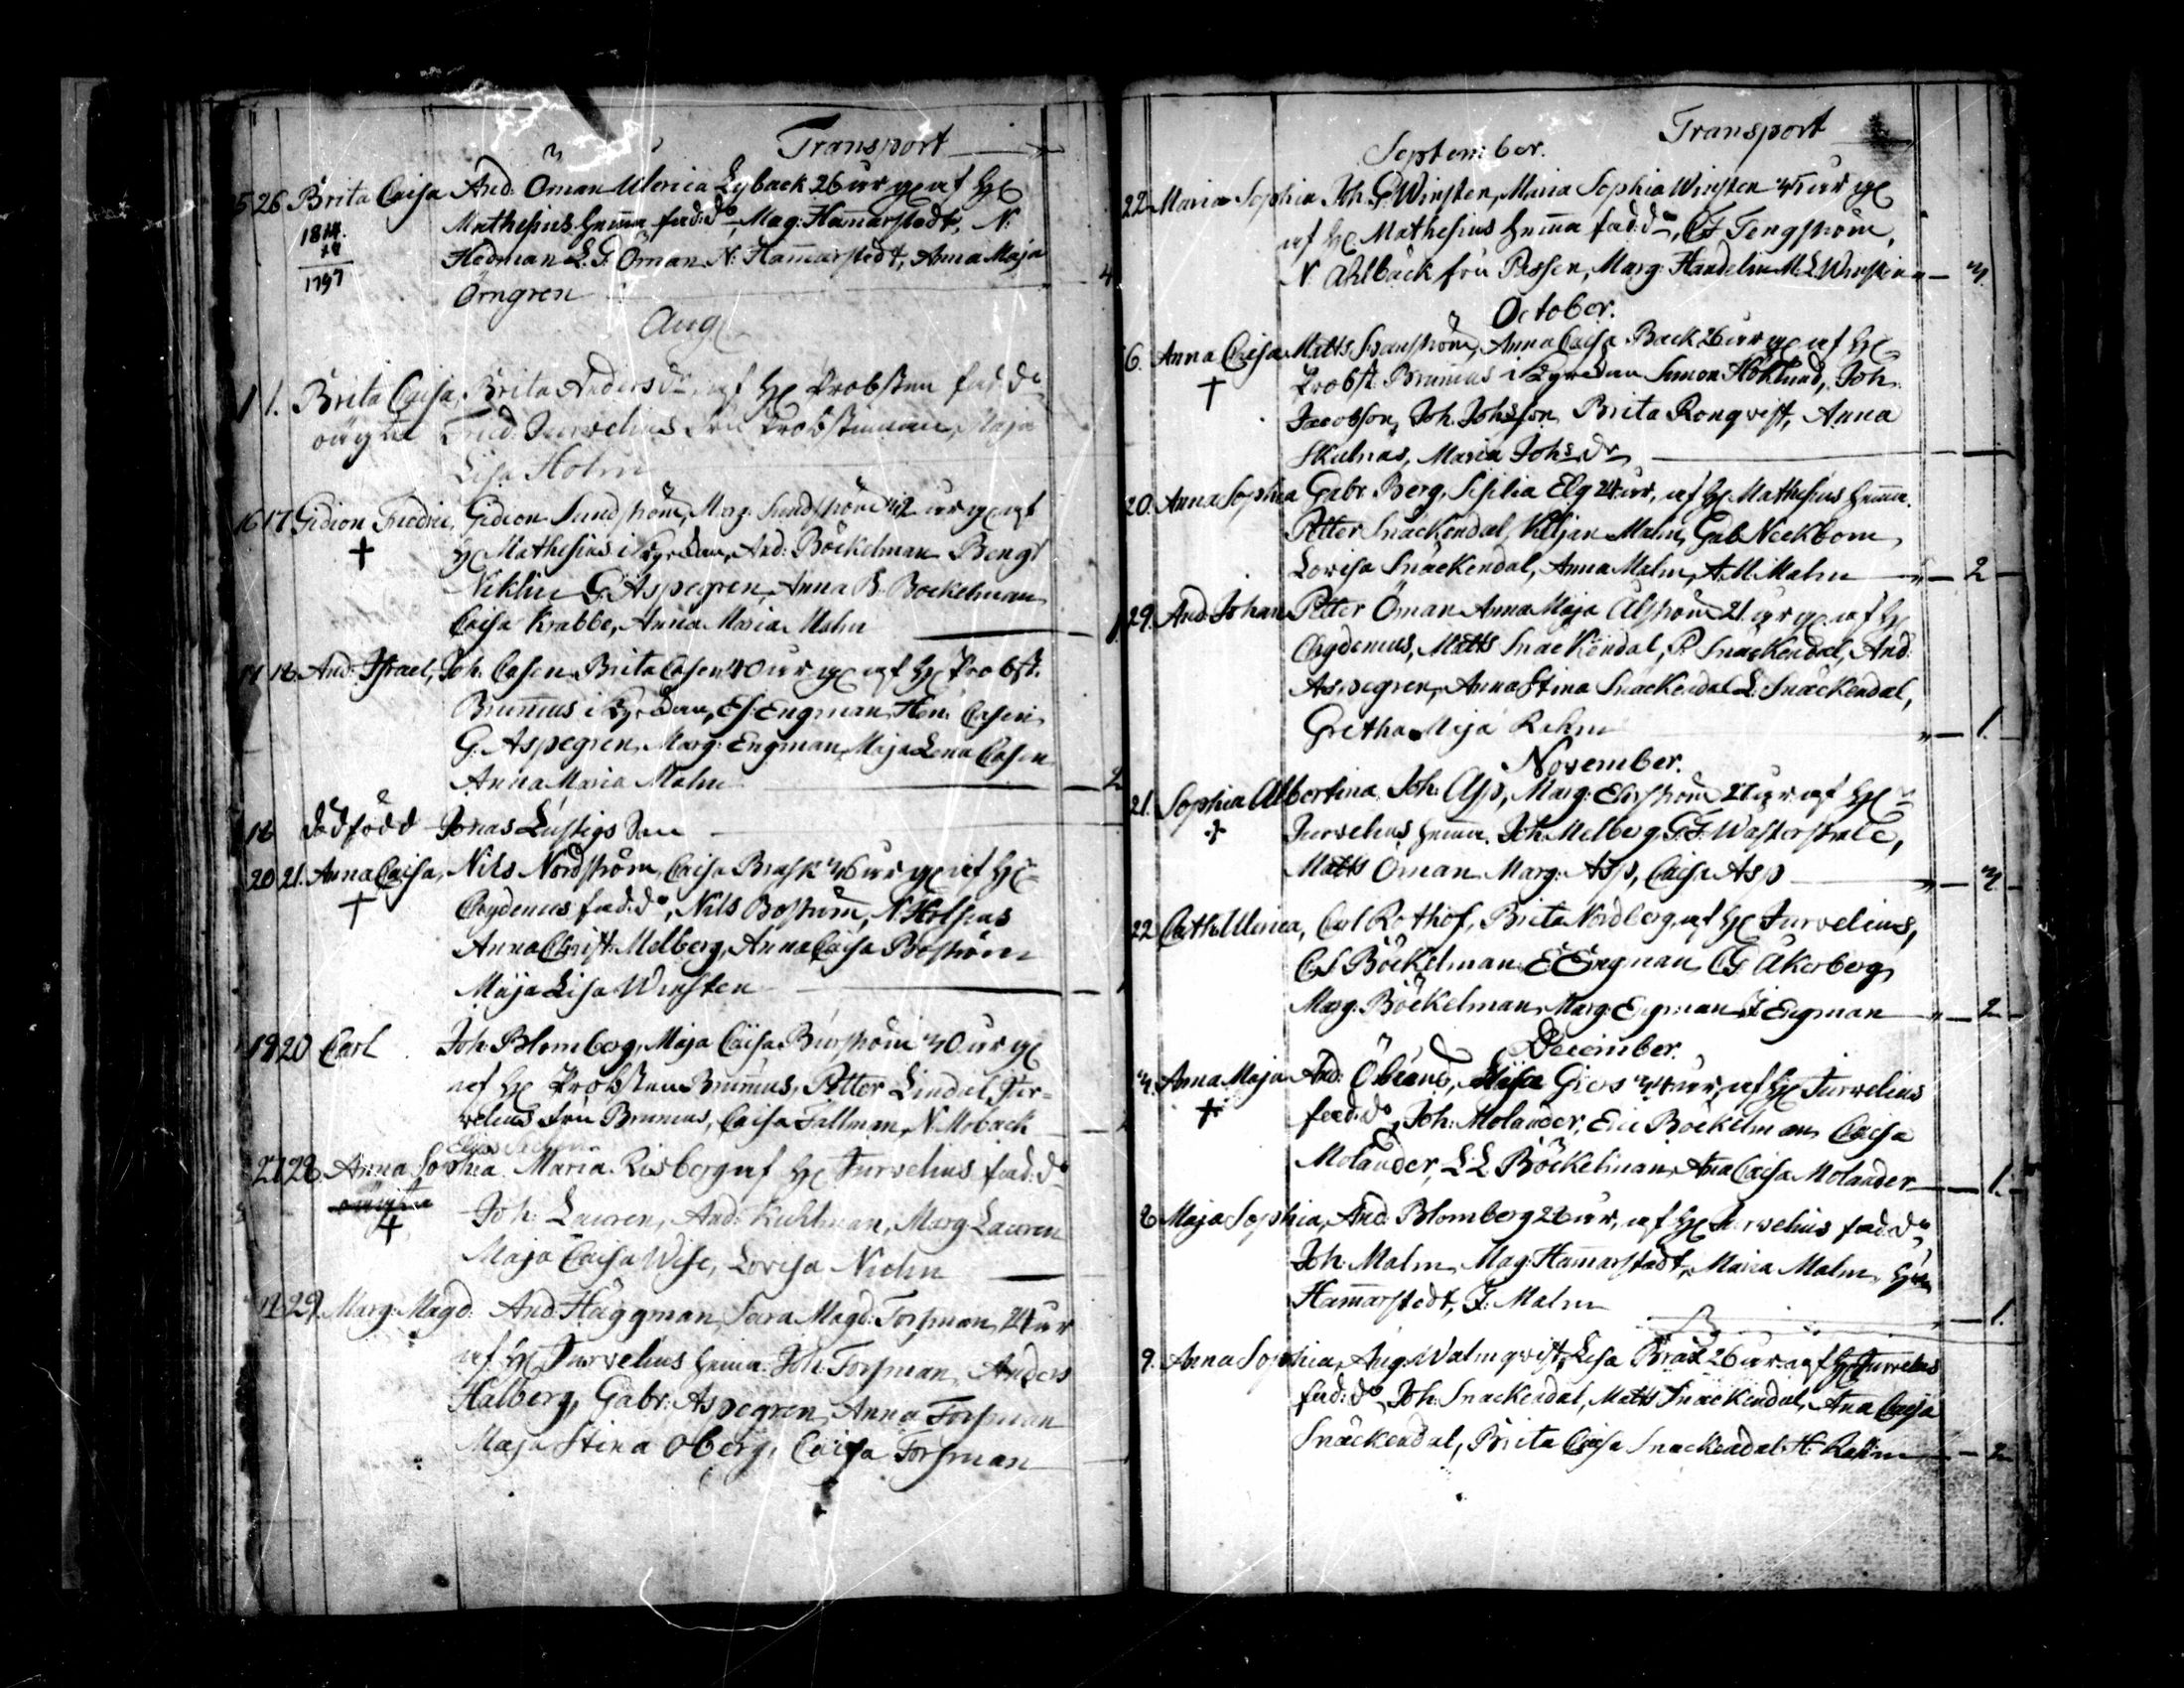 Transport
5 26 Brita Caisa And: Öman Ulerica Lyback 26 år gl af Hl
1814.
Mathesius hemma fad:do, Mag: Hamarstedt, N:
17
Hedman L. G. Öman N: Hamarstedt, Anna Maja 4
1797
Örngren
Aug
1 1. Brita Caisa, Brita Anders dr af Hl Probsten fad do
oägta Fred: Jurvelius Fru Probstinnan, Maja
Lisa Holm
16 17 Gidion Fredric, Gidion Sundström, Marg: Sundström 42 år gl af
Hl Mathesius i Kyrckan, And: Böckelman Bengt
Niklin G. Aspegren, Anna B. Bockelman
Caisa Krabbe, Anna Maria Malm 1
17 18 And: Israel, Joh. Casen Brita Casen 40 år gl af Hl Probst.
Brunnius i Kyrckan, Es: Engman, Hen: Casen
G. Aspegren, Marg: Engman, Maja Lena Casen
Anna Maria Malm 2
18 dödfödd Jonas Lustigs Son
20 21. Anna Caisa, Nils Nordström, Caisa Brask 36 år gl af Hl
Chydenius fad:do, Nils Boström, N: Holsas
Anna Christ: Melberg, Anna Caisa Boström
Maja Lisa Winsten
19 20 Carl Joh: Blomberg, Maja Caisa Burström 30 år gl
af Hl Probsten Brunnius, Petter Lindal Jur=
velius Fru Brunnius, Caisa Fallman, N: Moback
27 28 Anna Sophia Maria Risberg af Hl Jurvelius fad:do
oägta
Joh: Lauren, And: Kuhlman, Marg Lauren
Maja Caisa Wise, Lovisa Niolin
19 29. Marg: Magd: And: Häggman, Sara Magd: Forsman 24 år
af Hl Jurvelius hema. Joh: Forsman, Anders
Halberg, Gabr: Aspegren, Anna Forsman
Maja Stina Oberg, Caisa Forsman
Transport
September.
22 Maria Sophia Joh: G Winsten, Maria Sophia Winsten 35 år gl
af Hl Mathesius hemma fad:do, C F Tengström,
N. Ahlbäck fru Pessen, Marg: Handelin M: L Winsten 3.
October.
6. Anna Caisa Matts Svanström, Anna Caisa Back 26 år gl af Hl
Probst Brunnius i Kyrckan Simon Höklund, Joh:
Jacobson, Joh. Johsson Brita Ronqvist, Anna
Skulnas, Maria Johs dr
20. Anna Sophia Gabr: Berg, Sisilia Elg 24 år, af Hl Mathesius hemma.
Petter Snäckendal, Kiljan Malm, Gab Neckbom,
Lovisa Snäckendal, Anna Malm, A. M. Malm 2
29. And: Johan Petter Öman Anna Maja Alström 21 år gl af Hl
Chydenius, Matts Snäckendal, P. Snäckendal, And:
Aspegren, Anna Stina Snäckendal L. Snäckendal,
Gretha Maja Rehm 1.
November.
21. Sophia Albertina, Joh: Asp, Marg: Elfström 27 år af Hl
Jurvelius hemma. Joh: Melberg G. F. Wasterstrale,
Matts Öman Marg: Asp, Caisa Asp 3
22 Cath. Ulerica, Carl Rothof, Brita Nordberg, af Hl Jurvelius,
C. S Böckelman, E Engman C G Åkerberg,
Marg: Böckelman, Marg: Engman, F Engman 2
December.
3. Anna Maja And: Öbrand, Maja Giers 34 år, af Hl Jurvelius
fad:do, Joh: Molander, Eric Böckelman Caisa
Molander, L. L. Böckelman, Ana Caisa Molander 1.
8 Maja Sophia, And: Blomberg 28 år, af Hl Jurvelius fad:do,
Joh: Malm, Mag: Hamarstedt, Maria Malm,
Hamarstedt, F: Malm 1.
9. Anna Sophia, Aug: Walmqvist, Lisa Brax 26 år af Hl Jurvelius
fad:do, Joh: Snackendal, Matts Snackendal, Ana Caisa
Snäckendal, Brita Caisa Snackendal H: Rehm 2